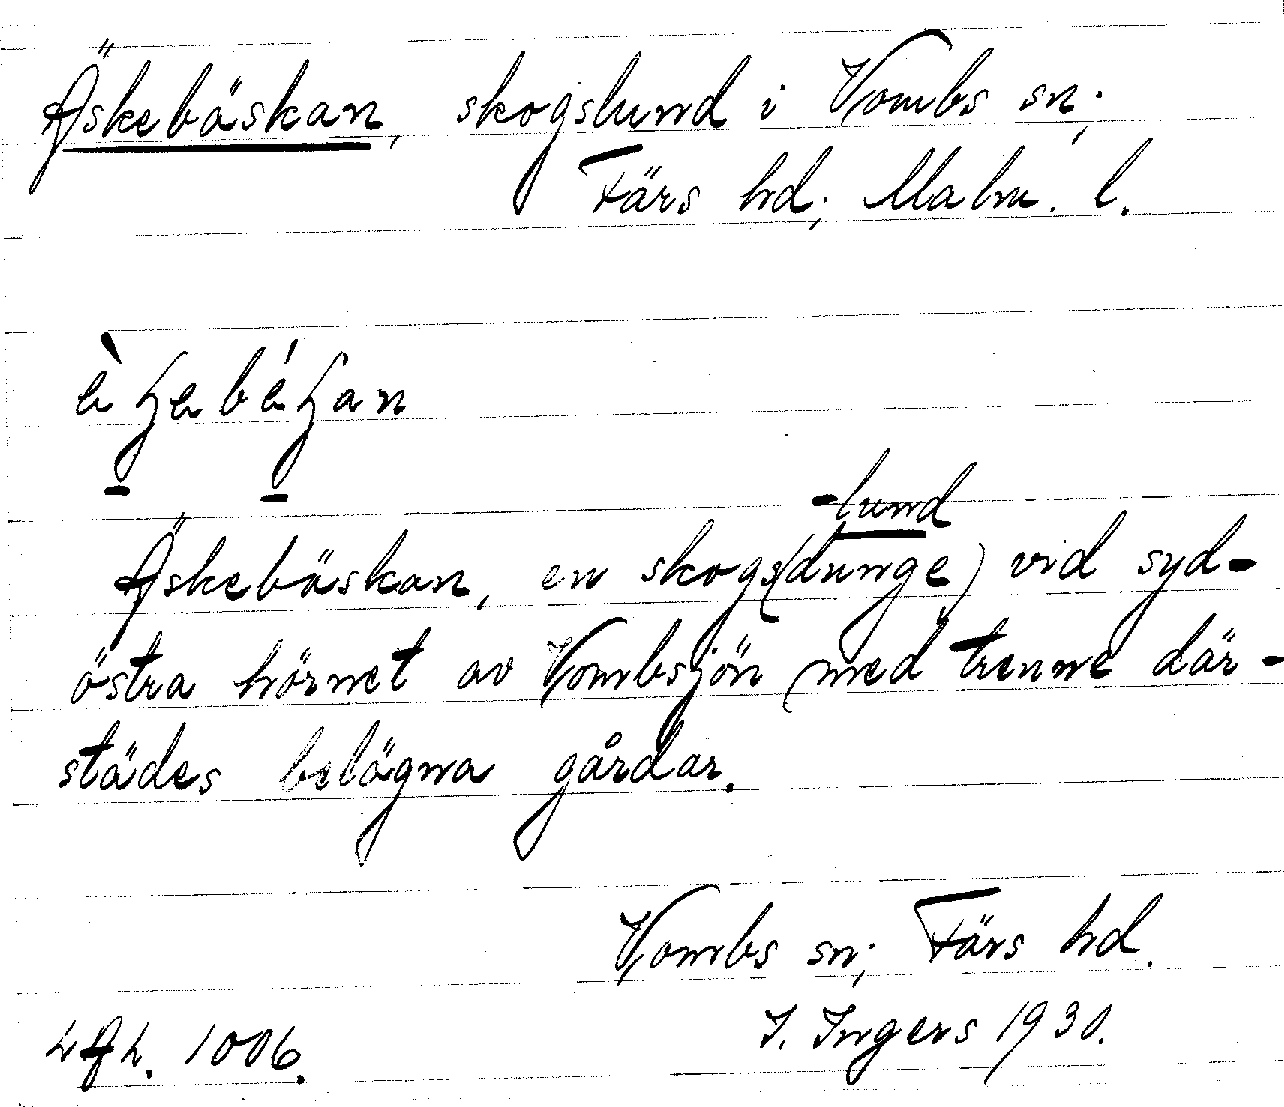 Äskebäskan, skogslund i Vombs sn;
Färs hd; Malm. l.
-lund
Äskebäskan, en skogs(dunge) vid syd-
östra hörnet av Vombsjön (med trenne där-
städes belägna gårdar.
Vombs sn; Färs hd.
I. Ingers 1930.
LAL. 1006.